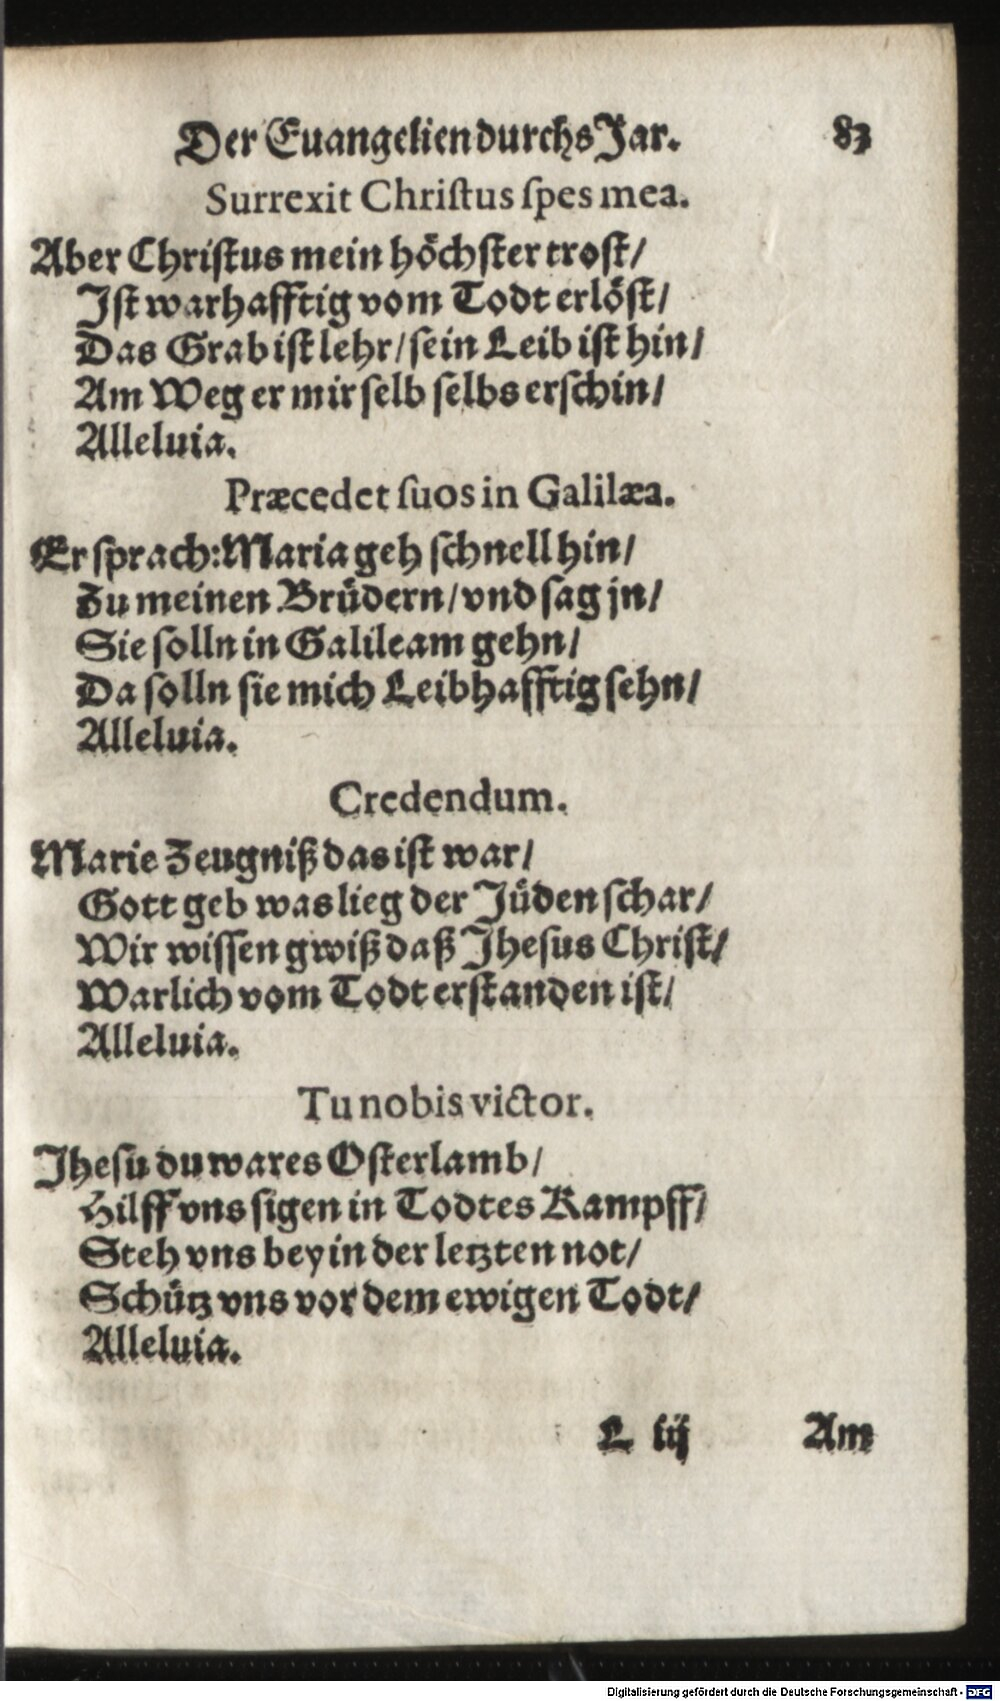 Der Euangelien durchs Jar. 83
Surrexit Chriſtus ſpes mea.
Aber Chriſtus mein höchſter troſt/
Jſt warhafftig vom Todt erlöſt/
Das Grab iſt lehr/ ſein Leib iſt hin/
Am Weg er mir ſelb ſelbs erſchin/
Alleluia.
Præcedet ſuos in Galilæa.
Er ſprach: Maria geh ſchnell hin/
Zu meinen Brüdern/ vnd ſag jn/
Sie ſolln in Galileam gehn/
Da ſolln ſie mich Leibhafftig ſehn/
Alleluia.
Credendum.
Marie Zeugniß das iſt war/
Gott geb was lieg der Jüden ſchar/
Wir wiſſen gwiß daß Jheſus Chriſt/
Warlich vom Todt erſtanden iſt/
Alleluia.
Tu nobis victor.
Jheſu du wares Oſterlamb/
Hilff vns ſigen in Todtes Kampff/
Steh vns bey in der letzten not/
Schütz vns vor dem ewigen Todt/
Alleluia.
L iij Am
Digitalisierung gefördert durch die Deutsche Forschungsgemeinschaft - DFG